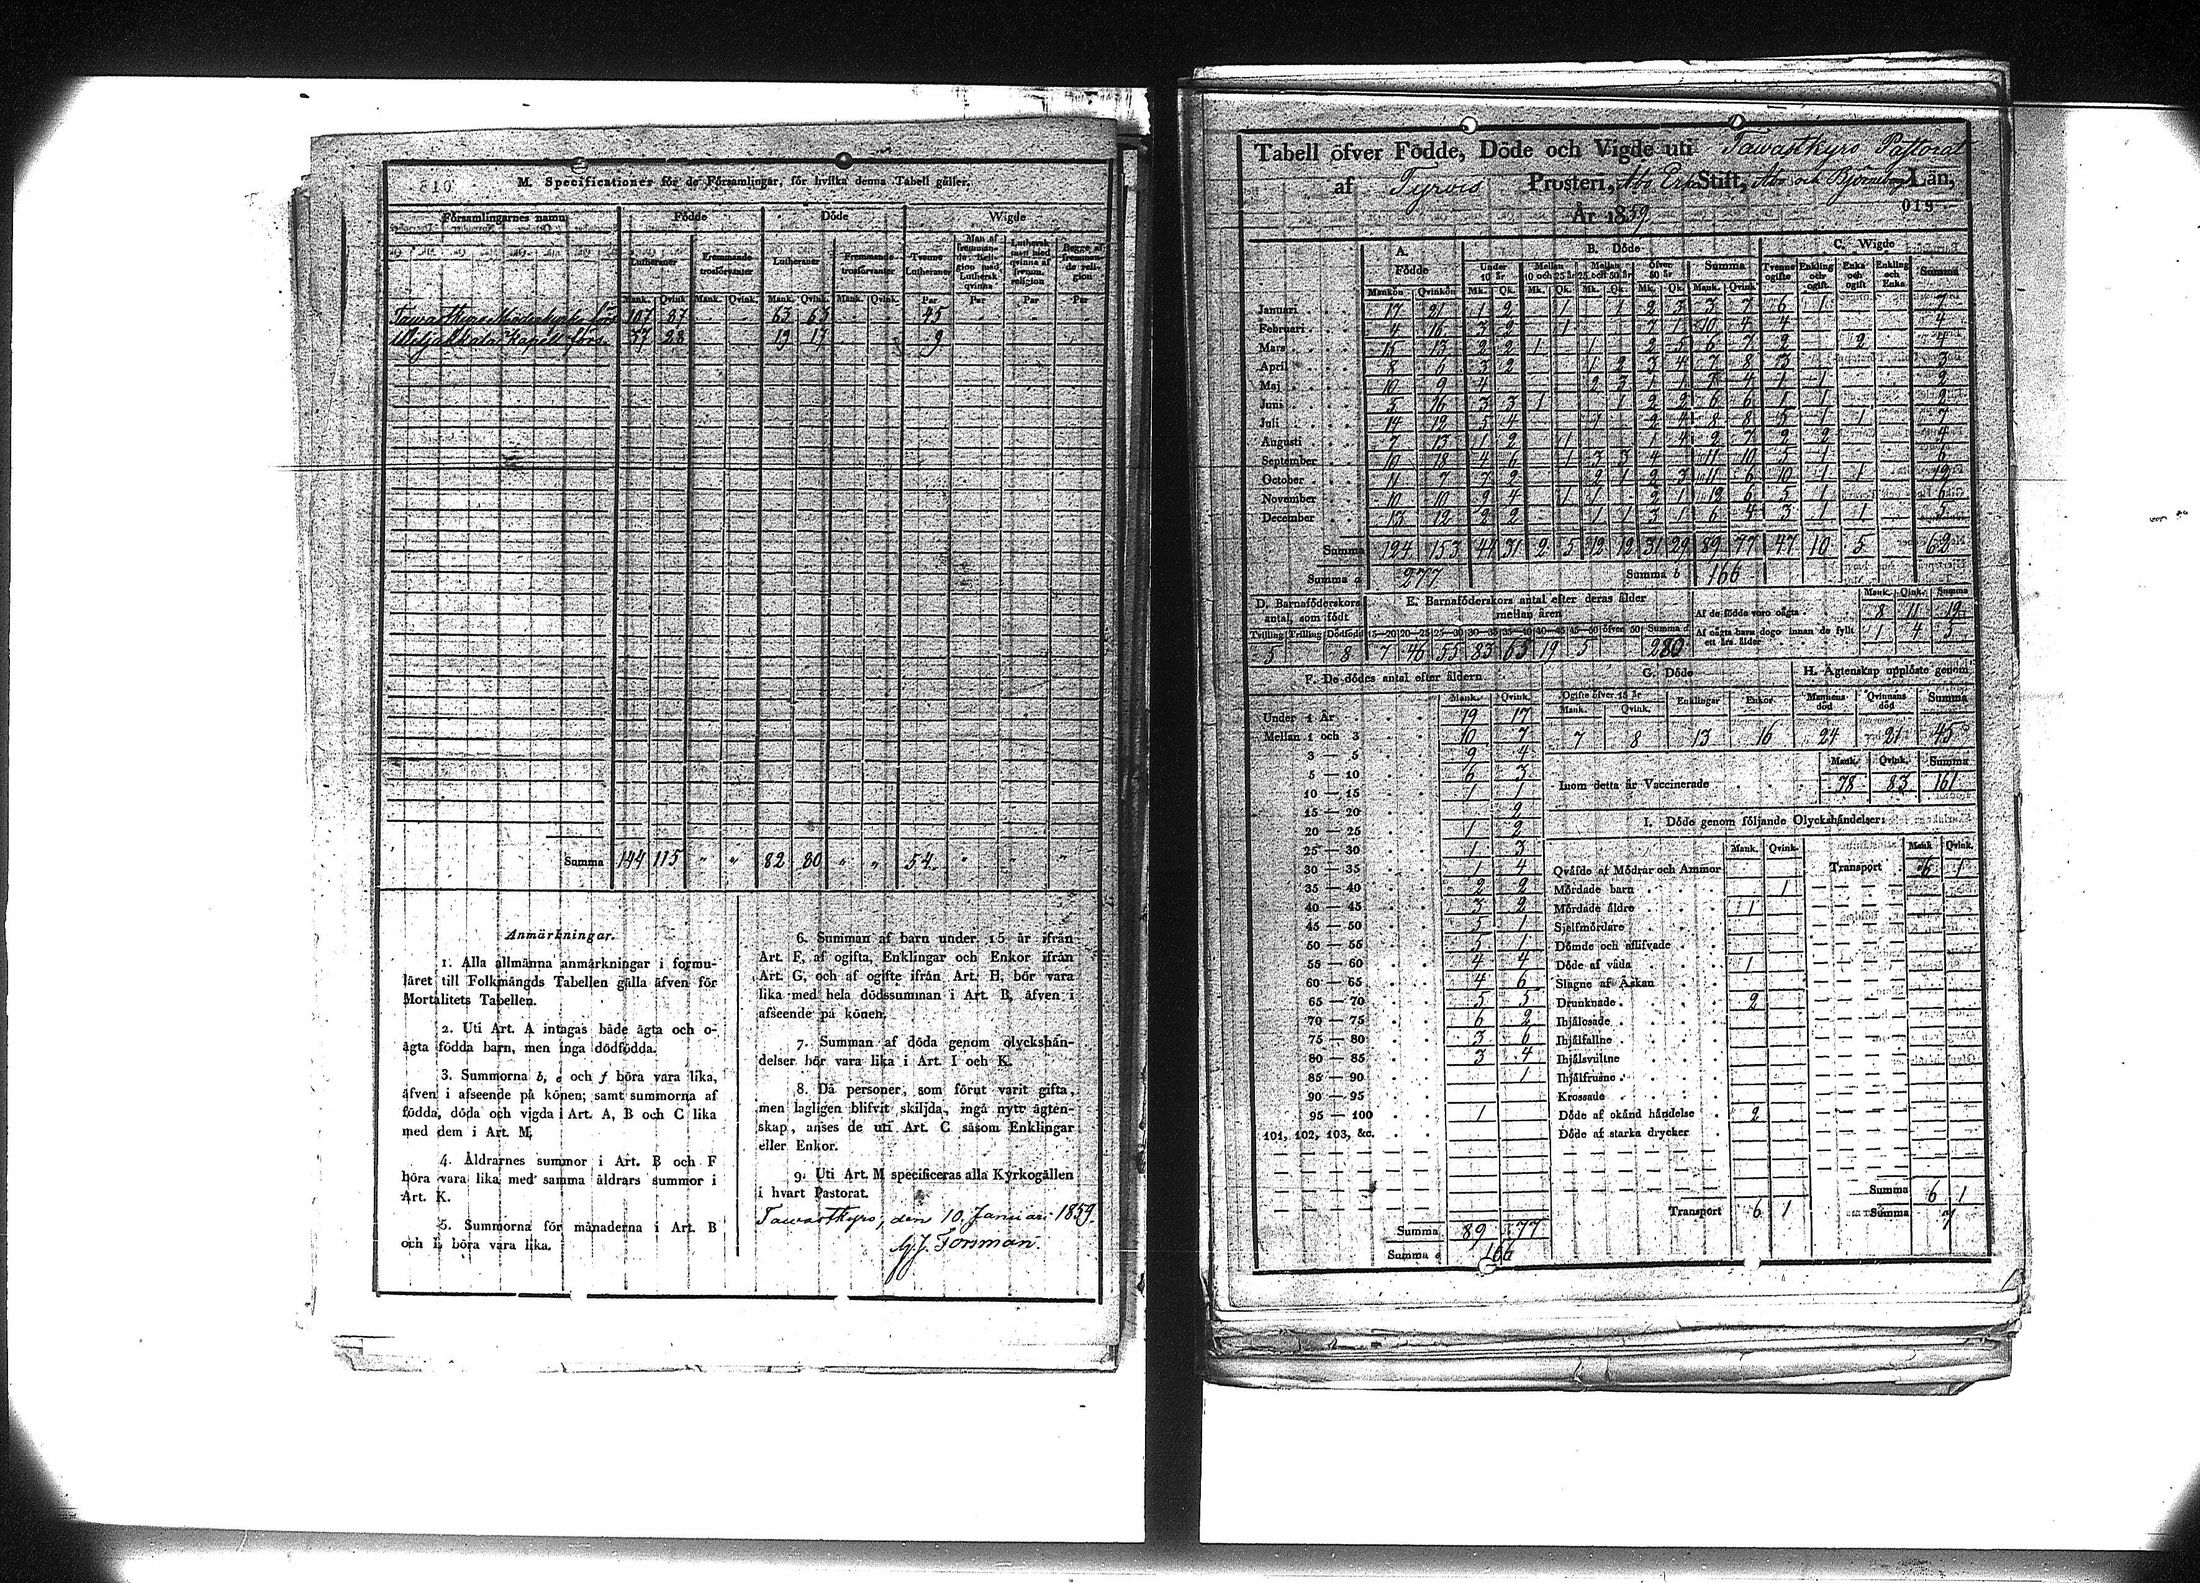 M. Specificationer för de Församlingar, för hvilka denna Tabell gäller.
Församlingarnes namn Födde Döde Wigde
Lutheraner Fremmande trosförvanter Lutheraner Fremmande trosförvanter Tvenne Lutheraner Man af fremmande Religion med Luthersk qvinna Luthersk man med qvinna af fremm. religion Begge af fremmande religion
Mank. Qvink. Mank. Qvink. Mank. Qvink. Mank. Qvink. Par Par Par Par
Tawastkyro Moderkyrko förs. 107 87 63 63 45
Wiljakkala Kapell förs. 37 28 19 17 9
Summa 144 115 " " 82 80 " " 54 " " "
Anmärkningar.
1. Alla allmänna anmärkningar i formu-
läret till Folkmängds Tabellen gälla äfven för
Mortalitets Tabellen.
2. Uti Art. A intagas både ägta och o-
ägta födda barn, men inga dödfödda.
3. Summorna b, e och f böra vara lika,
äfven i afseende på könen; samt summorna af
födda, döda och vigda i Art. A, B och C lika
med dem i Art. M.
4. Åldrarnes summor i Art. B och F
böra vara lika med samma åldrars summor i
Art. K.
5. Summorna för månaderna i Art. B
och L böra vara lika.
6. Summan af barn under 15 år ifrån
Art. F, af ogifta, Enklingar och Enkor ifrån
Art. G, och af ogifte ifrån Art. H, bör vara
lika med hela dödssumman i Art. B, äfven i
afseende på könen.
7. Summan af döda genom olyckshän-
delser bör vara lika i Art. I och K.
8. Då personer, som förut varit gifta,
men lagligen blifvit skiljda, ingå nytt ägten-
skap, anses de uti Art. C såsom Enklingar
eller Enkor.
9. Uti Art. M specificeras alla Kyrkogällen
i hvart Pastorat.
Tawastkyro, den 10. Januari 1859.
G. J. Forsman.
Tabell öfver Födde, Döde och Vigde uti Tawastkyro Pastorat
af Tyrvis Prosteri, Åbo Erke Stift, Åbo och Björneborgs Län,
År 1859.
019
A. Födde B. Döde C. Wigde
Under 10 år Mellan 10 och 25 år Mellan 25 och 50 år öfver 50 år Summa Tvenne ogifte Enkling och ogift Enka och ogift Enkling och Enka Summa
Mankön Qvinkön Mk. Qk. Mk. Qk. Mk. Qk. Mk. Qk. Mank. Qvink.
Januari 17 21 1 2 1 1 2 3 3 7 6 1 7
Februari 4 16 3 2 1 7 1 10 4 4 4
Mars 15 13 2 2 1 1 2 5 6 7 2 2 4
April 8 6 3 2 1 2 3 4 7 8 3 3
Maj 10 9 4 2 3 1 1 7 4 1 1 2
Juni 5 16 3 3 1 1 2 2 6 6 1 1 2
Juli 14 12 5 4 1 2 4 8 8 5 1 1 7
Augusti 7 13 1 2 1 1 4 2 7 2 2 4
September 10 18 4 6 1 3 3 4 11 10 5 1 6
October 11 7 7 2 2 1 2 3 11 6 10 1 1 12
November 10 10 9 4 1 1 2 1 12 6 5 1 6
December 13 12 2 2 1 1 3 1 6 4 3 1 1 5
Summa 124 153 41 31 2 5 12 12 31 29 89 77 47 10 5 62
Summa a 277 Summa b 166
D. Barnaföderskors antal, som födt
Tvilling Trilling Dödfödd
5 8
E. Barnaföderskors antal efter deras ålder mellan åren
15—20 20—25 25—30 30—35 35—40 40—45 45—50 öfver 50 Summa d
7 46 55 83 65 19 5 280
Mank. Qvink. Summa
Af de födde voro oägta 8 11 19
Af oägta barn dogo innan de fyllt ett års ålder 1 4 5
F. De dödes antal efter åldern
Mank. Qvink.
Under 1 År 19 17
Mellan 1 och 3 10 7
3 — 5 9 4
5 — 10 6 3
10 — 15 1 1
15 — 20 2
20 — 25 1 2
25 — 30 1 3
30 — 35 1 4
35 — 40 2 2
40 — 45 3 2
45 — 50 5 1
50 — 55 5 1
55 — 60 4 4
60 — 65 4 6
65 — 70 5 5
70 — 75 6 2
75 — 80 3 6
80 — 85 3 4
85 — 90 1
90 — 95
95 — 100 1
101, 102, 103, &c.
Summa 89 77
Summa e 166
G. Döde
Ogifte öfver 15 år Enklingar Enkor
Mank. Qvink.
7 8 13 16
H. Ägtenskap upplöste genom
Mannens död Qvinnans död Summa
24 21 45
Mank. Qvink. Summa
Inom detta år Vaccinerade 78 83 161
I. Döde genom följande Olyckshändelser:
Mank. Qvink. Mank. Qvink.
Qväfde af Mödrar och Ammor Transport 6 1
Mördade barn 1
Mördade äldre 1
Sjelfmördare
Dömde och aflifvade
Döde af våda 1
Slagne af Åskan
Drunknade 2
Ihjälosade
Ihjälfallne
Ihjälsvultne
Ihjälfrusne
Krossade
Döde af okänd händelse 2
Döde af starka drycker
Summa 6 1
Transport 6 1 Summa 7